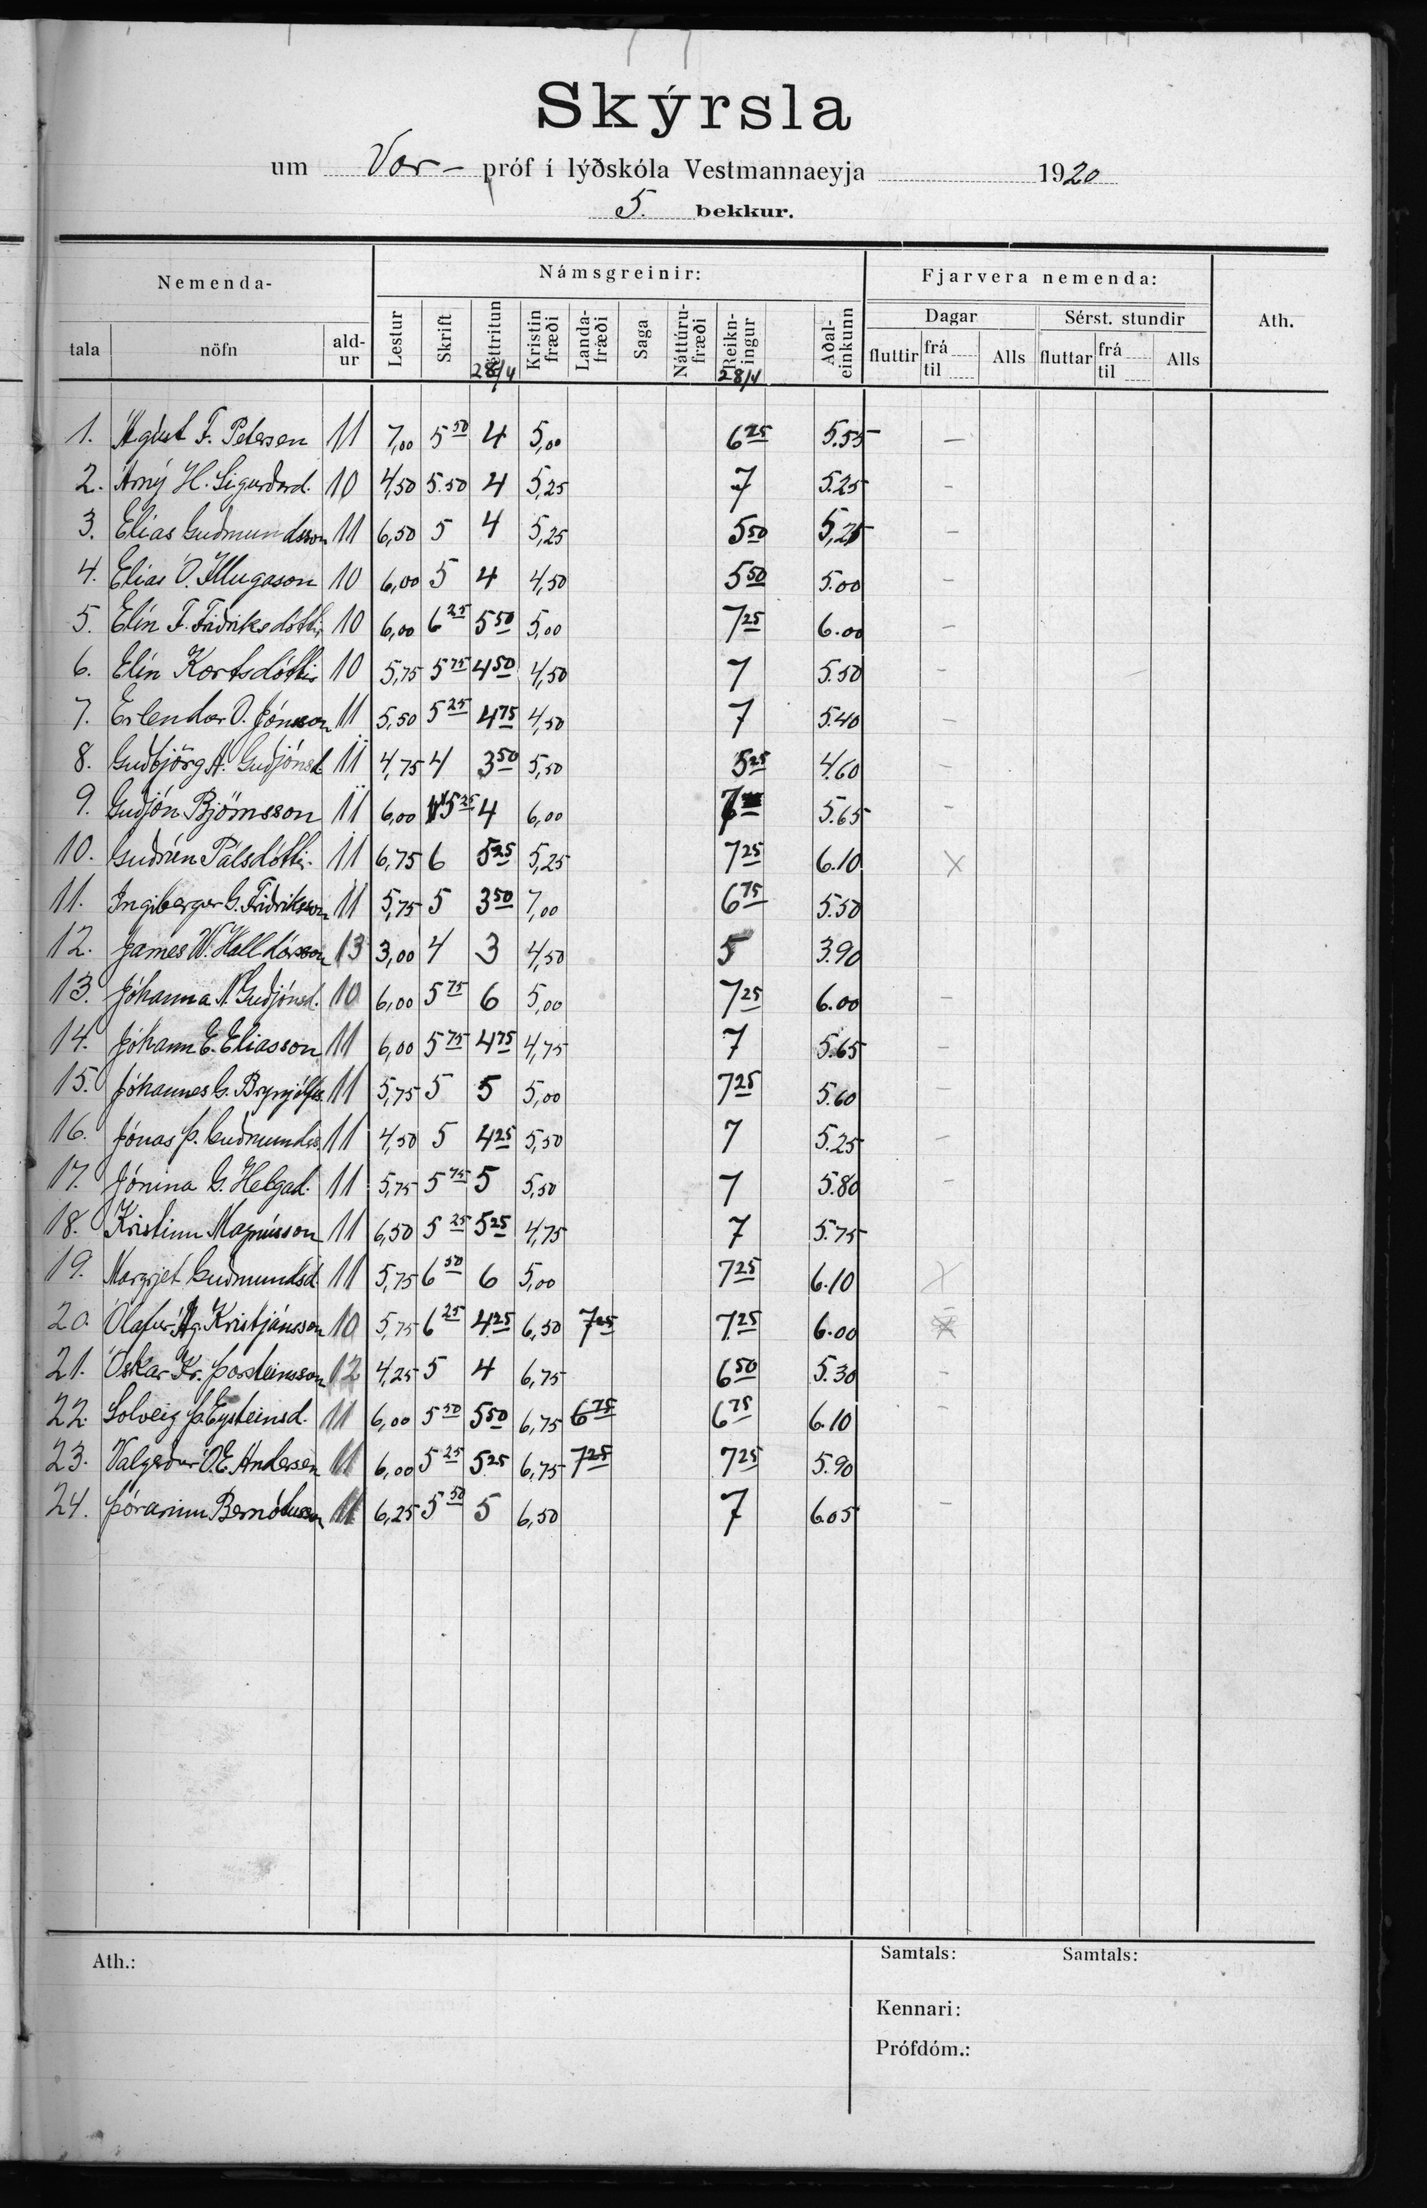 Skýrsla
um Vor- próf í lýðskóla Vestmannaeyja 1920
5. bekkur.
Nemenda- Námsgreinir: Fjarvera nemenda: Ath.
Dagar Sérst. stundir
tala nöfn ald-ur Lestur Skrift Réttritun Kristin fræði Landa-fræði Saga Náttúru-fræði Reikn-ingur Aðal-einkunn fluttir frá til Alls fluttar frá til Alls
28/4 28/4
1. Ágúst F. Petersen 11 7,00 5 50 4 5,00 6 25 5.55 —
2. Árný H. Sigurðard. 10 4,50 5.50 4 5,25 7 5.25 —
3. Elías Guðmundsson 11 6,50 5 4 5,25 5 50 5,25 —
4. Elías Ó. Illugason 10 6,00 5 4 4,50 5 50 5.00 —
5. Elín F. Friðriksdóttir 10 6,00 6 25 5 50 5,00 7 25 6.00 —
6. Elín Kortsdóttir 10 5,75 5 75 4 50 4,50 7 5.50 —
7. Erlendur O. Jónsson 11 5,50 5 25 4 75 4,50 7 5.40 —
8. Guðbjörg A. Guðjónsd 11 4,75 4 3 50 5,50 5 25 4.60 —
9. Guðjón Björnsson 11 6,00 5 25 4 6,00 7 5.65 —
10. Guðrún Pálsdóttir 11 6,75 6 5 25 5,25 7 25 6.10 X
11. Ingibergur G. Friðriksson 11 5,75 5 3 50 7,00 6 75 5.50 —
12. James W. Halldórsson 13 3,00 4 3 4,50 5 3.90 —
13. Jóhanna N. Guðjónsd. 10 6,00 5 75 6 5,00 7 25 6.00 —
14. Jóhann E. Elíasson 11 6,00 5 75 4 75 4,75 7 5.65 —
15. Jóhannes G. Brynjólfss. 11 5,75 5 5 5,00 7 25 5.60 —
16. Jónas Þ. Guðmundss. 11 4,50 5 4 25 5,50 7 5.25 —
17. Jónína G. Helgad. 11 5,75 5 75 5 5,50 7 5.80 —
18. Kristinn Magnússon 11 6,50 5 25 5 25 4,75 7 5.75 —
19. Margrjet Guðmundsd 11 5,75 6 50 6 5,00 7 25 6.10 X
20. Ólafur Ág. Kristjánsson 10 5,75 6 25 4 25 6,50 7 25 7 25 6.00
21. Óskar Kr. Þorsteinsson 12 4,25 5 4 6,75 6 50 5.30 —
22. Solveig Þ. Eysteinsd. 11 6,00 5 50 5 50 6,75 6 75 6 75 6.10 —
23. Valgerður Ó.E. Andersen 11 6,00 5 25 5 25 6,75 7 25 7 25 5.90 —
24. Þórarinn Bernótusson 11 6,25 5 50 5 6,50 7 6.05 —
Ath.: Samtals: Samtals:
Kennari:
Prófdóm.: